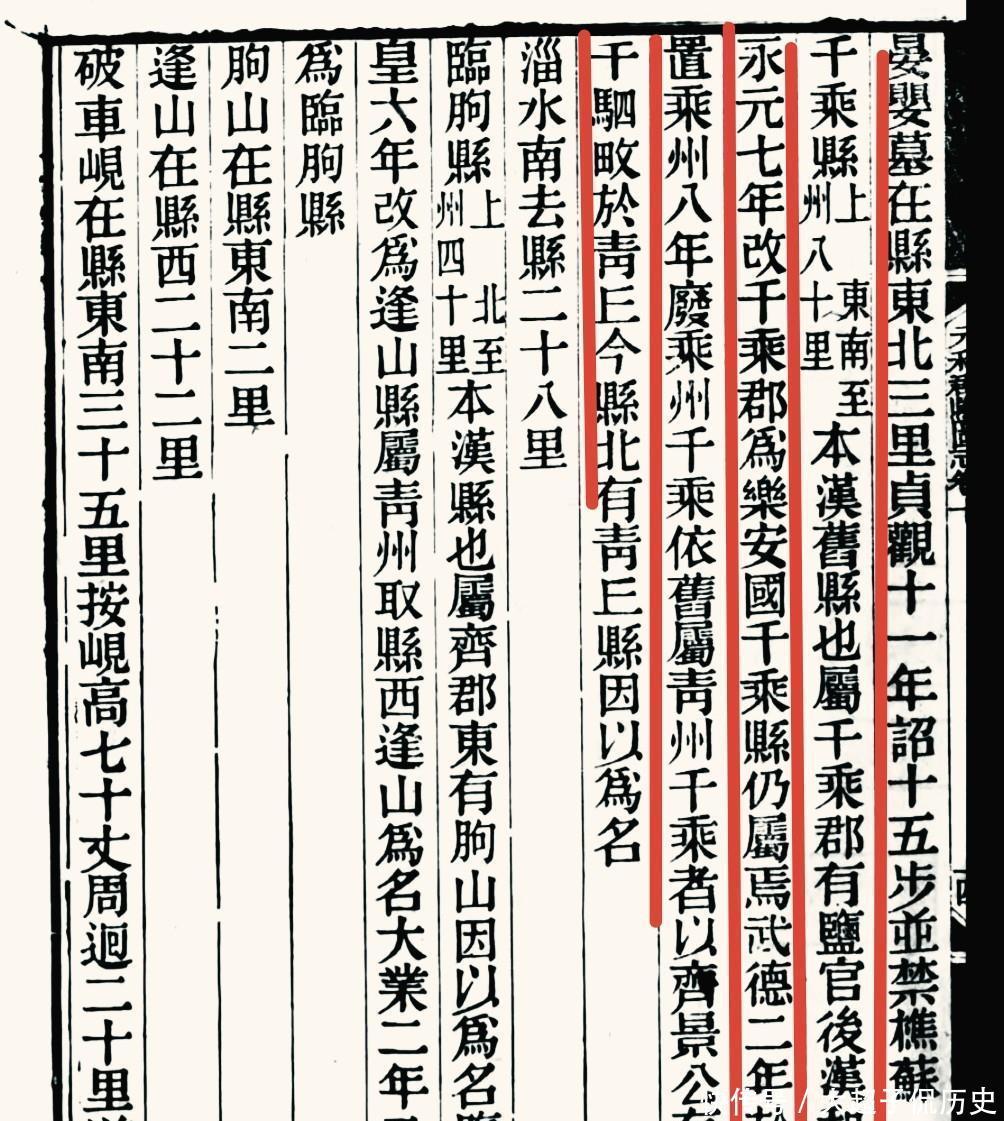 晏嬰墓在縣東北三里貞觀十一年詔十五步並禁樵蘇
千乘縣上東南至州八十里本漢舊縣也屬千乘郡有鹽官後漢
永元七年改千乘郡為樂安國千乘縣仍屬焉武德二年於
置乘州八年廢乘州千乘依舊屬青州千乘者以齊景公有
千駟畋於青丘今縣北有青丘縣因以為名
淄水南去縣二十八里
臨朐縣上北至州四十里本漢縣也屬齊郡東有朐山因以為名
皇六年改為逢山縣屬青州取縣西逢山為名大業二年
為臨朐縣
朐山在縣東南二里
逢山在縣西二十二里
破車峴在縣東南三十五里按峴高七十丈周迴二十里